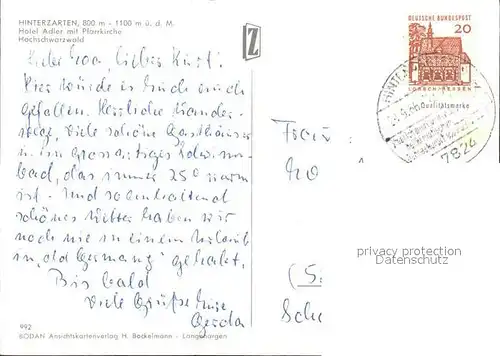 HINTERZARTEN, 800 m - 1100 m ü. d. M.
Hotel Adler mit Pfarrkirche
Hochschwarzwald
Liebe Eva, lieber Kurt!
Hier würde es Euch auch
gefallen. Herrliche Wander-
wege, viele schöne Gasthäuser
u. ein grossartiges Schwimm-
bad, das immer 25° warm
ist. Und so anhaltend
schönes Wetter haben wir
noch nie in einem Urlaub
in "old Germany" gehabt.
Bis bald
Viele Grüße Eure
Gerda
992
BODAN Ansichtskartenverlag H. Bockelmann - Langenargen
DEUTSCHE BUNDESPOST
20
LORSCH/HESSEN
Qualitätsmarke
7824
Frau
(S
Sch
privacy protection
Datenschutz